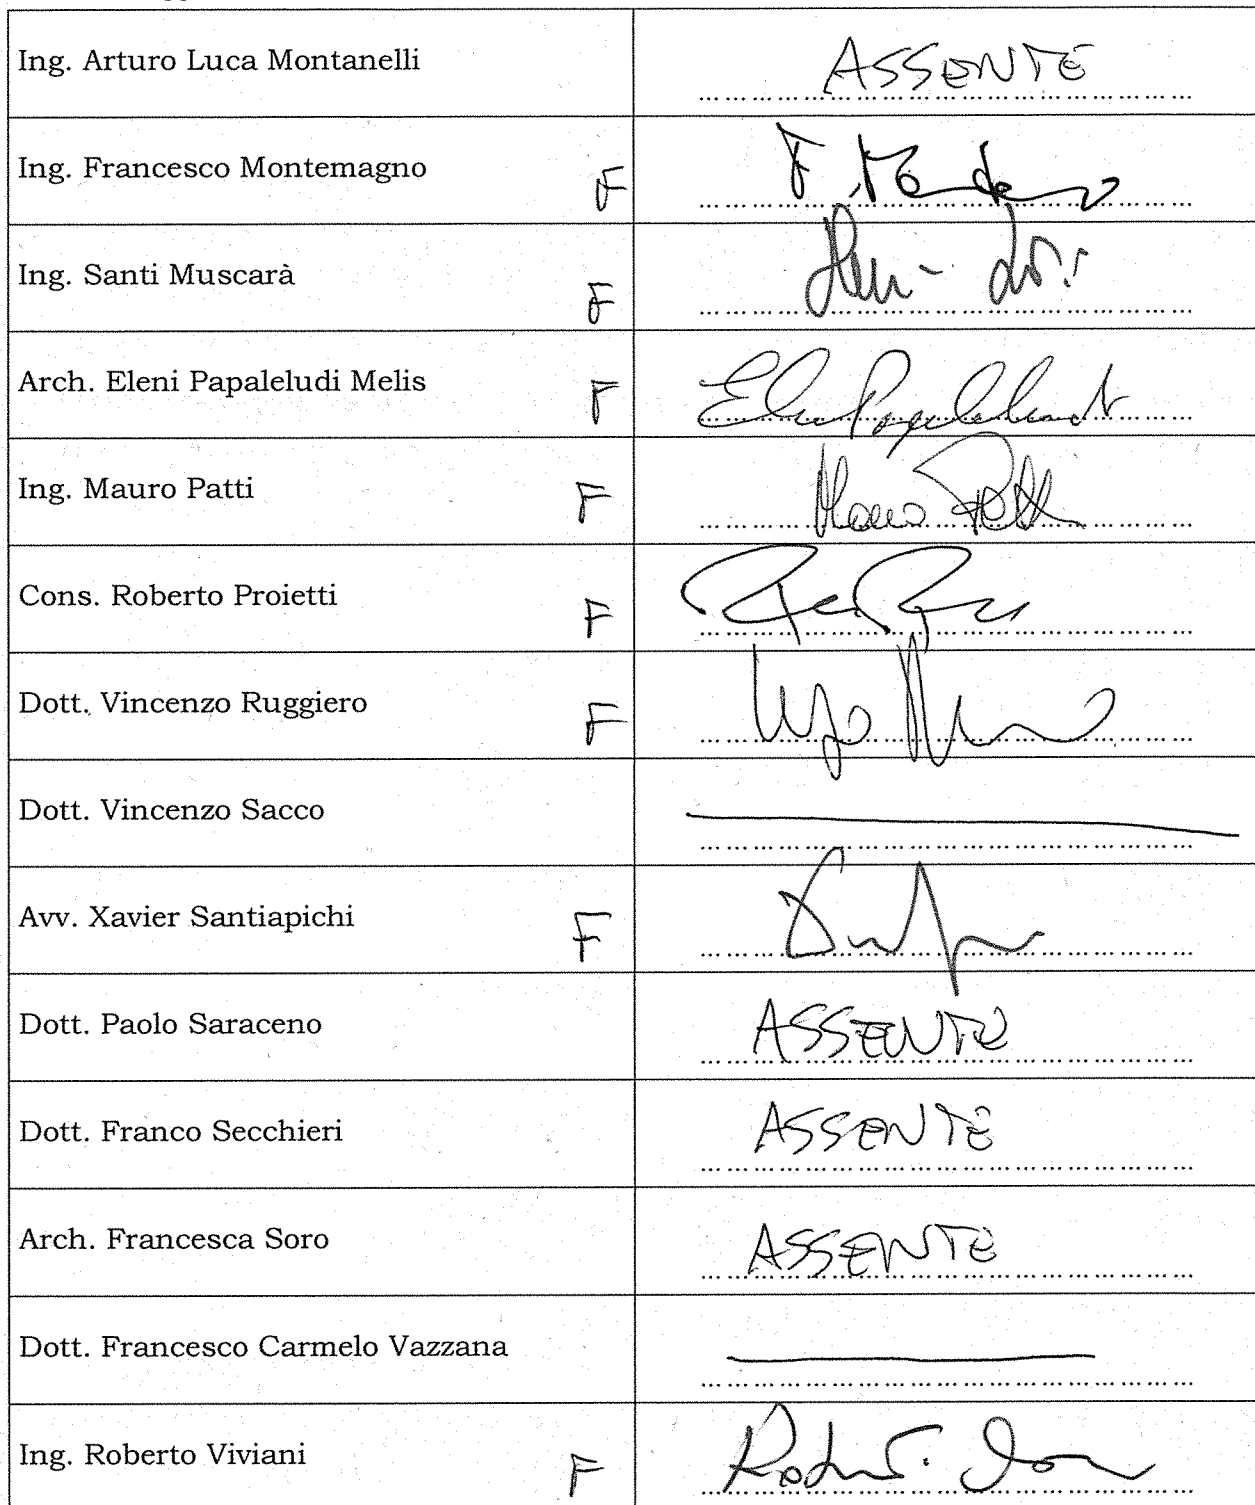 Ing. Arturo Luca Montanelli ASSENTE
Ing. Francesco Montemagno F
Ing. Santi Muscarà F
Arch. Eleni Papaleludi Melis F
Ing. Mauro Patti F Mauro Patti
Cons. Roberto Proietti F
Dott. Vincenzo Ruggiero F
Dott. Vincenzo Sacco
Avv. Xavier Santiapichi F
Dott. Paolo Saraceno ASSENTE
Dott. Franco Secchieri ASSENTE
Arch. Francesca Soro ASSENTE
Dott. Francesco Carmelo Vazzana
Ing. Roberto Viviani F